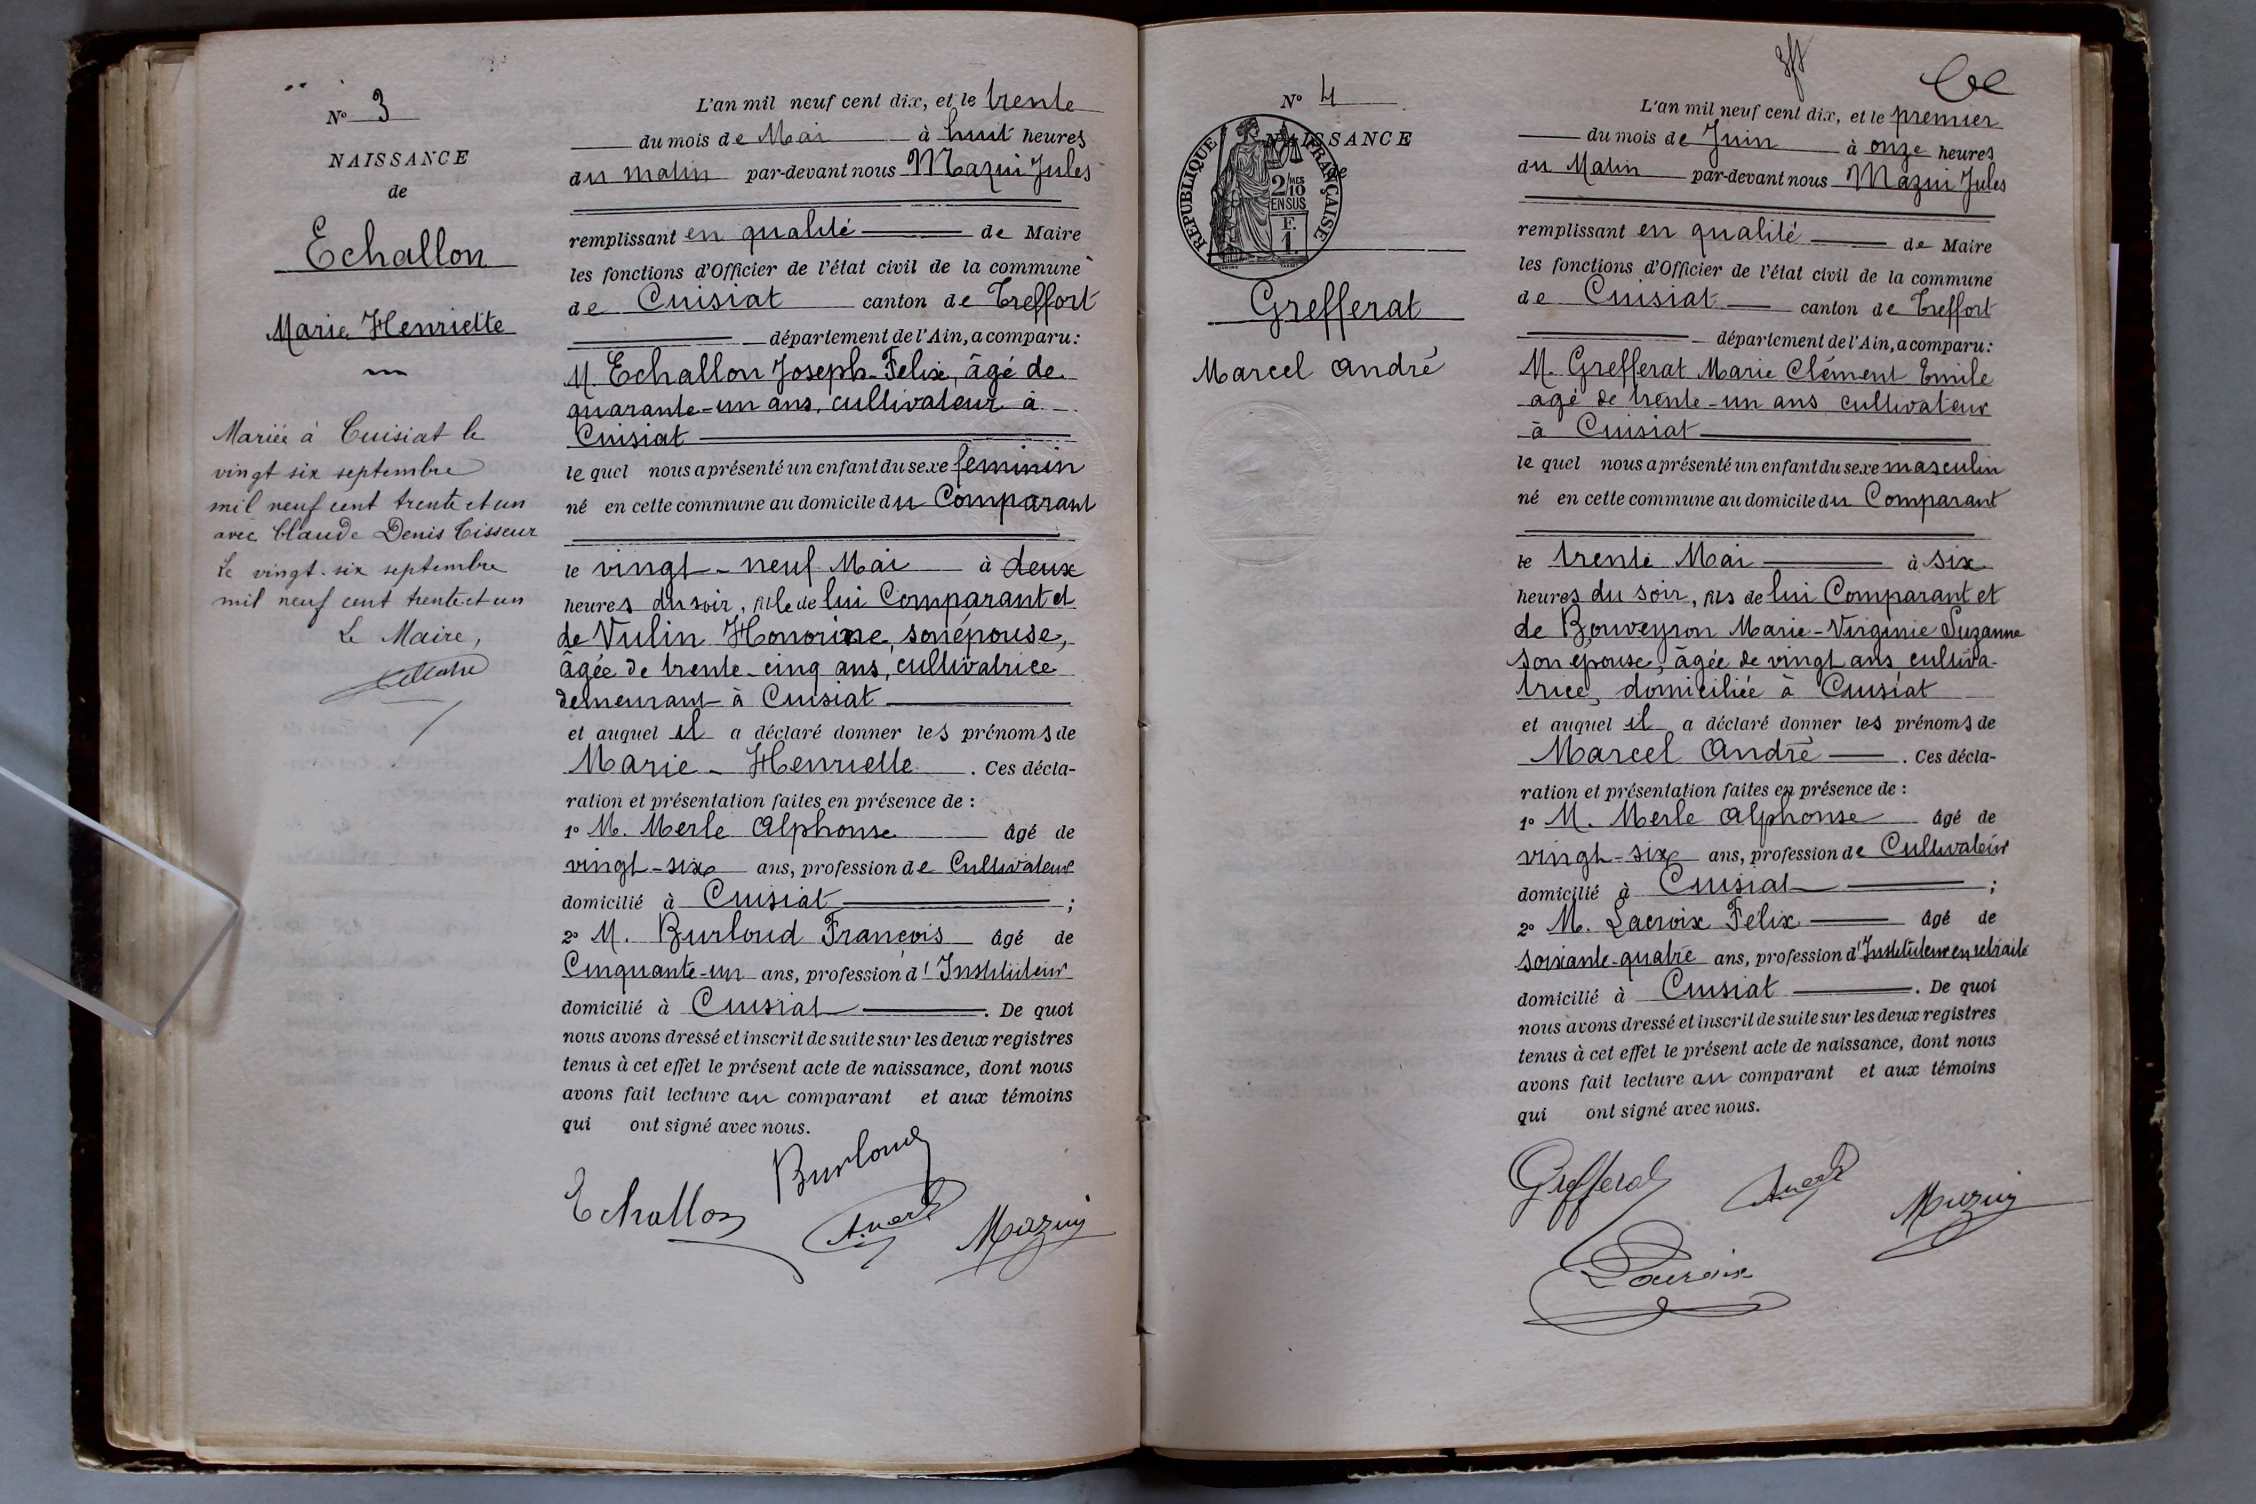 N° 3
NAISSANCE
de
Echallon
Marie Henriette
Mariée à Cuisiat le
vingt six septembre
mil neuf cent trente et un
avec Claude Denis Tisseur
Le vingt-six septembre
mil neuf cent trente et un
Le Maire,
L'an mil neuf cent dix, et le trente
du mois de Mai à huit heures
du matin par-devant nous Mazui Jules
remplissant en qualité de Maire
les fonctions d'Officier de l'état civil de la commune
de Cuisiat canton de Treffort
département de l'Ain, a comparu:
M. Echallon Joseph-Felix, âgé de
quarante-un ans, cultivateur à
Cuisiat
le quel nous a présenté un enfant du sexe feminin
né en cette commune au domicile du Comparant
le vingt-neuf Mai à deux
heures du soir, fille de lui Comparant et
de Vulin Honorine, son épouse,
âgée de trente-cinq ans, cultivatrice
demeurant à Cuisiat
et auquel il a déclaré donner les prénoms de
Marie-Henriette. Ces décla-
ration et présentation faites en présence de :
1° M. Merle Alphonse âgé de
vingt-six ans, profession de Cultivateur
domicilié à Cuisiat ;
2° M. Burloud François âgé de
Cinquante-un ans, profession d'Instituteur
domicilié à Cuisiat. De quoi
nous avons dressé et inscrit de suite sur les deux registres
tenus à cet effet le présent acte de naissance, dont nous
avons fait lecture au comparant et aux témoins
qui ont signé avec nous.
Burloud
Echallon
Mazuy
N° 4
NAISSANCE
de
REPUBLIQUE FRANÇAISE
2/10 MES
EN SUS
F.
1
Grefferat
Marcel André
L'an mil neuf cent dix, et le premier
du mois de Juin à onze heures
du Matin par-devant nous Mazui Jules
remplissant en qualité de Maire
les fonctions d'Officier de l'état civil de la commune
de Cuisiat canton de Treffort
département de l'Ain, a comparu:
M. Grefferat Marie Clément Emile
agé de trente-un ans cultivateur
à Cuisiat
le quel nous a présenté un enfant du sexe masculin
né en cette commune au domicile du Comparant
le trente Mai à six
heures du soir, fils de lui Comparant et
de Bouveyron Marie-Virginie Suzanne
son épouse, âgée de vingt ans cultiva-
trice, domiciliée à Cuisiat
et auquel il a déclaré donner les prénoms de
Marcel André. Ces décla-
ration et présentation faites en présence de :
1° M. Merle Alphonse âgé de
vingt-six ans, profession de Cultivateur
domicilié à Cuisiat ;
2° M. Lacroix Felix âgé de
soixante-quatre ans, profession d'Instituteur en retraite
domicilié à Cuisiat. De quoi
nous avons dressé et inscrit de suite sur les deux registres
tenus à cet effet le présent acte de naissance, dont nous
avons fait lecture au comparant et aux témoins
qui ont signé avec nous.
Grefferat
Mazuy
Lacroix